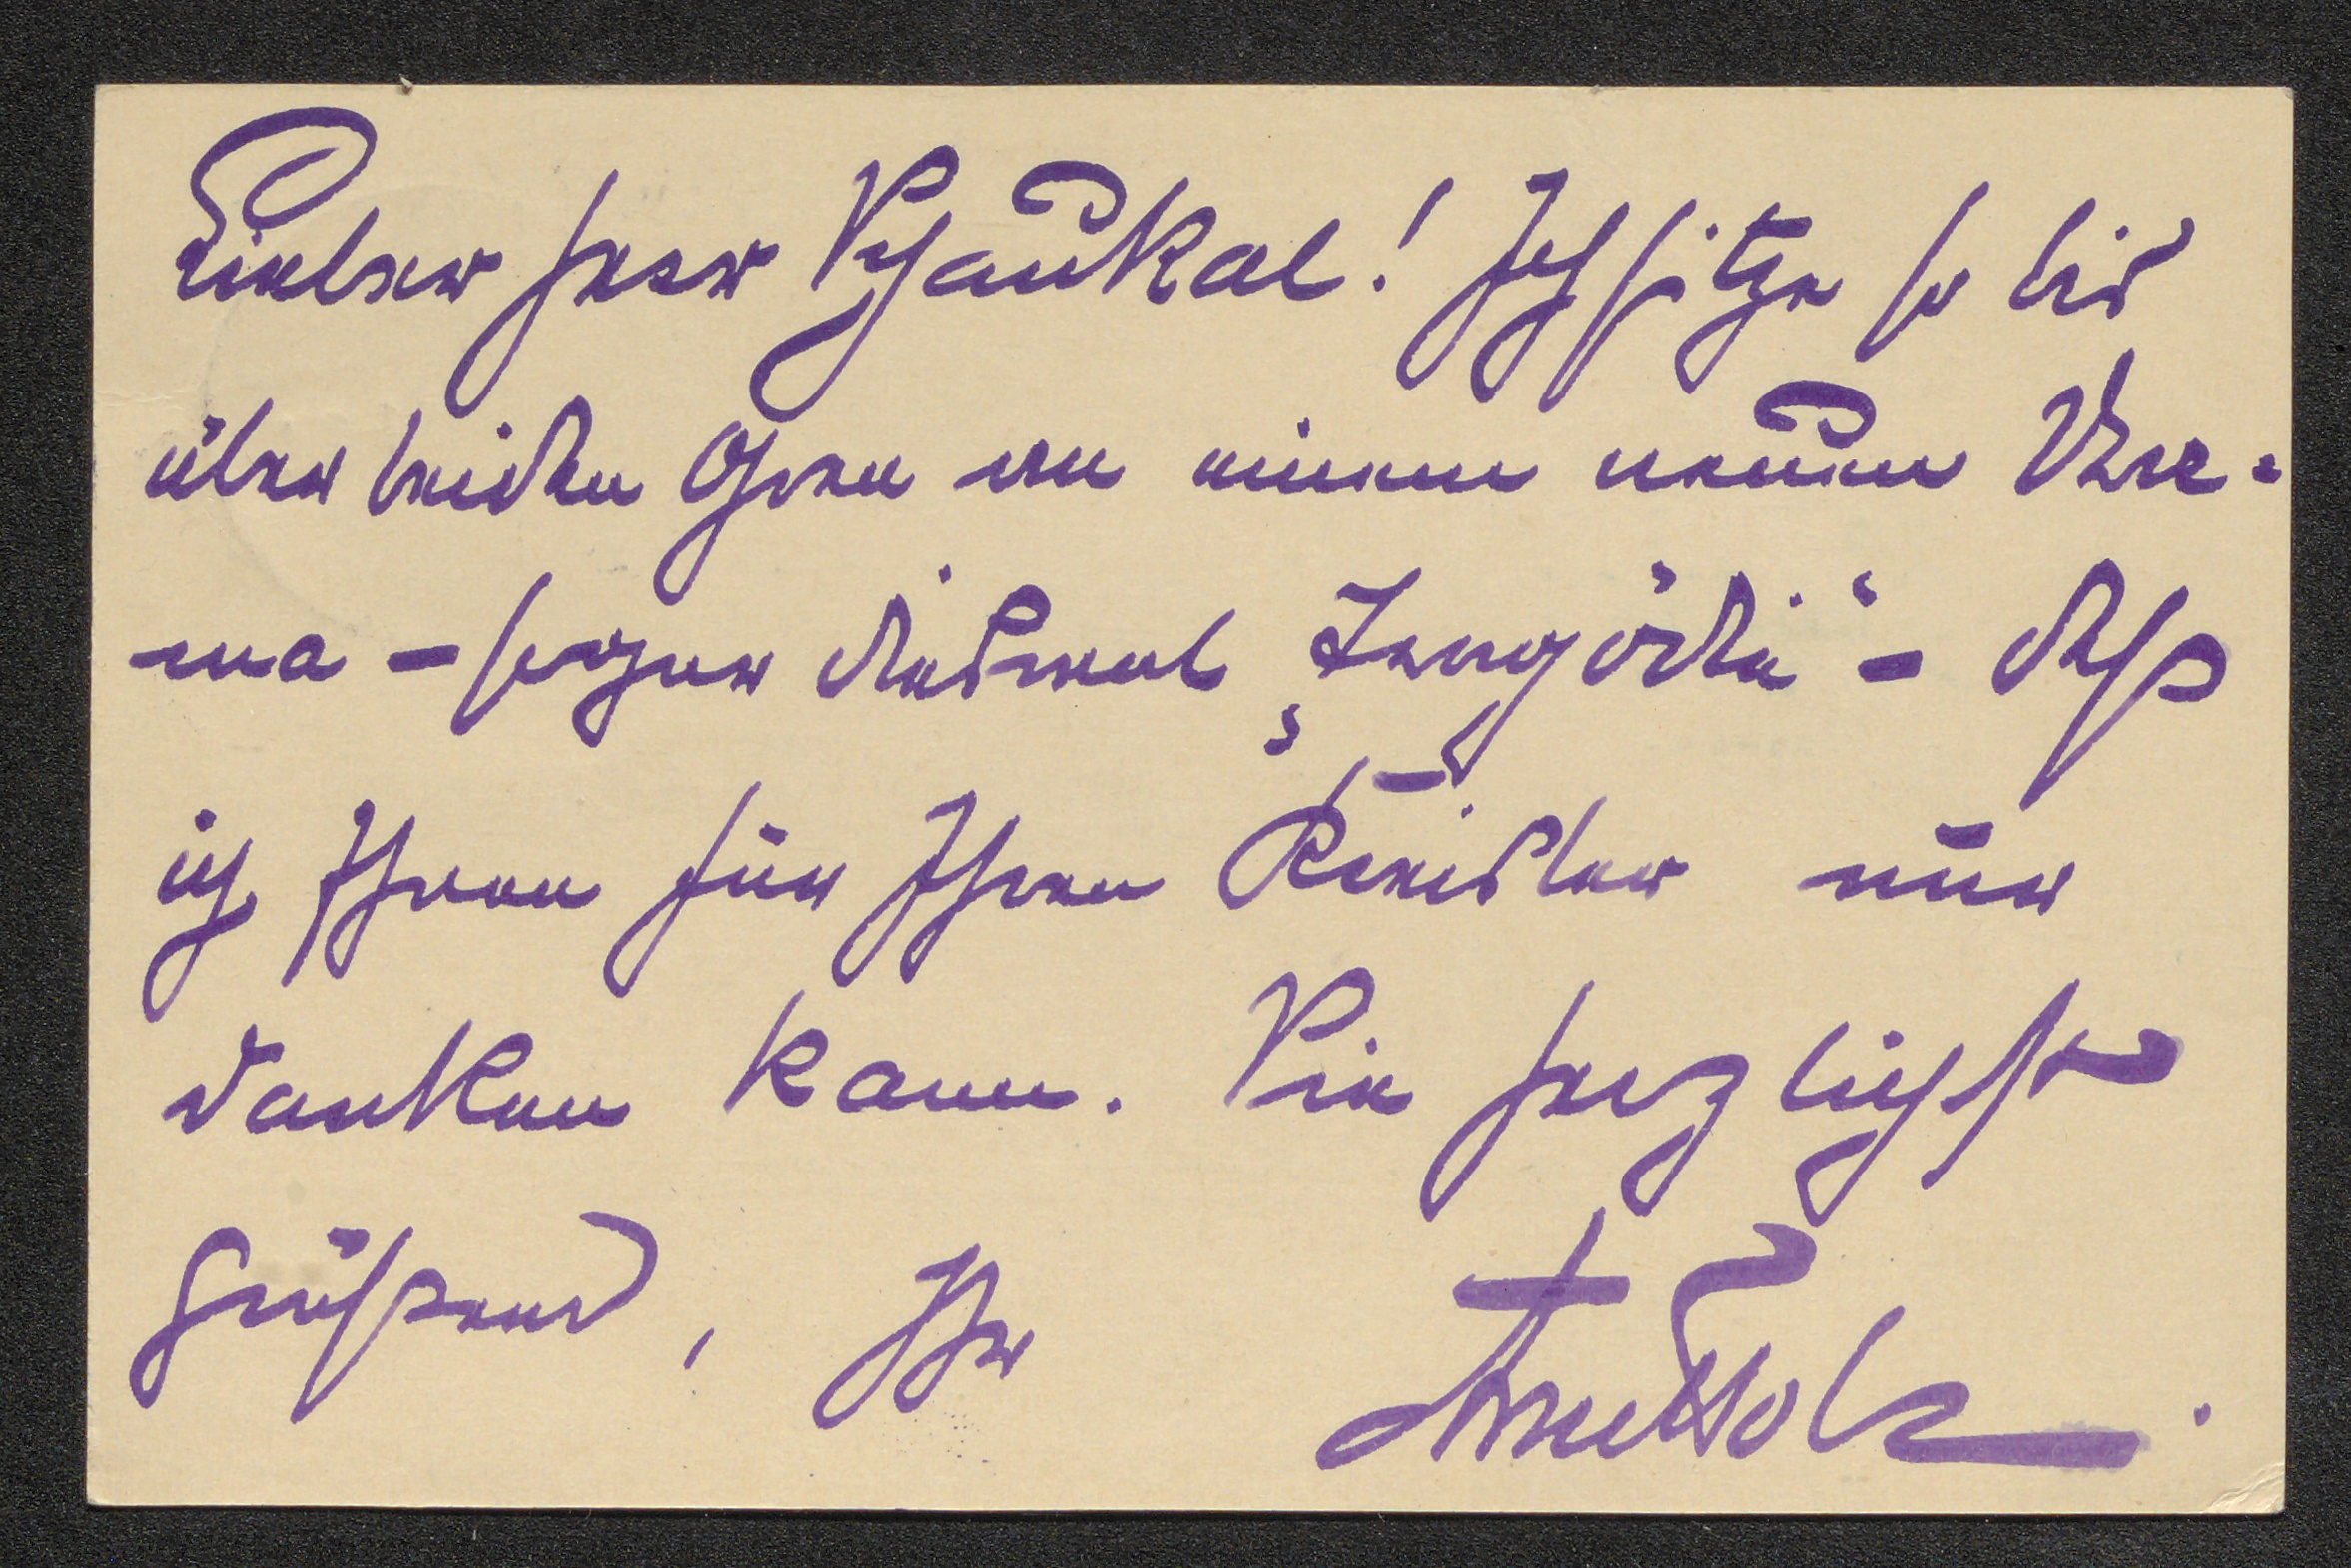 Lieber Herr Schaukal! Ich sitze so bis
über beiden Ohren in einem neuen Dra-
ma – sogar diesmal „Tragödie" – daß
ich Ihnen für Ihren Kreisler nur
danken kann. Sie herzlichst
grüßend, Ihr Arno Holz.